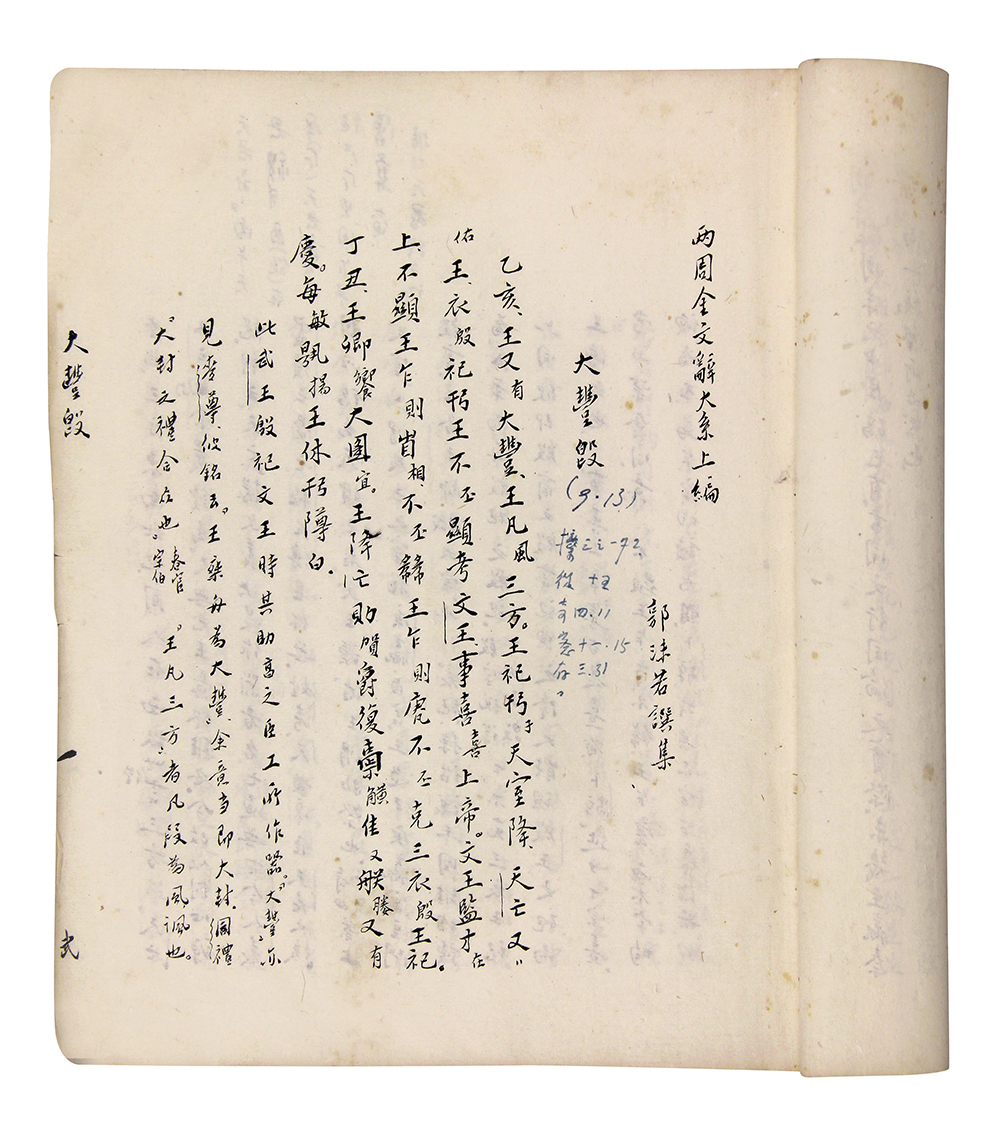 两周金文辭大系上編
郭沫若譔集
大豐𣪘(9.13)
攈三之一.72
從 十五
奇四.11
愙十一.15
存 三.31
乙亥、王又有大豐、王凡風三方。王祀𢓊于天室降、天亡又〃
佑王、衣殷祀𢓊王不丕顯考文王、事喜喜上帝。文王監才在
上、不顯王乍則眚相、不丕䋣王乍則𢊁、不丕克三衣殷王祀。
丁丑、王卿饗大𡇈宜。王降亡𠟭䝿爵復櫜觵隹又朕媵又有
慶。每敏覭揚王休𢓊䵼白。
此武王殷祀文王時其助享之臣工所作器。“大豐”亦
見麥尊、彼銘云“王乘舟為大豐”余意當即大封、周禮
“大封之禮合众也”春官宗伯。“王凡三方”者凡叚為風諷也。
大豐𣪘
一
武